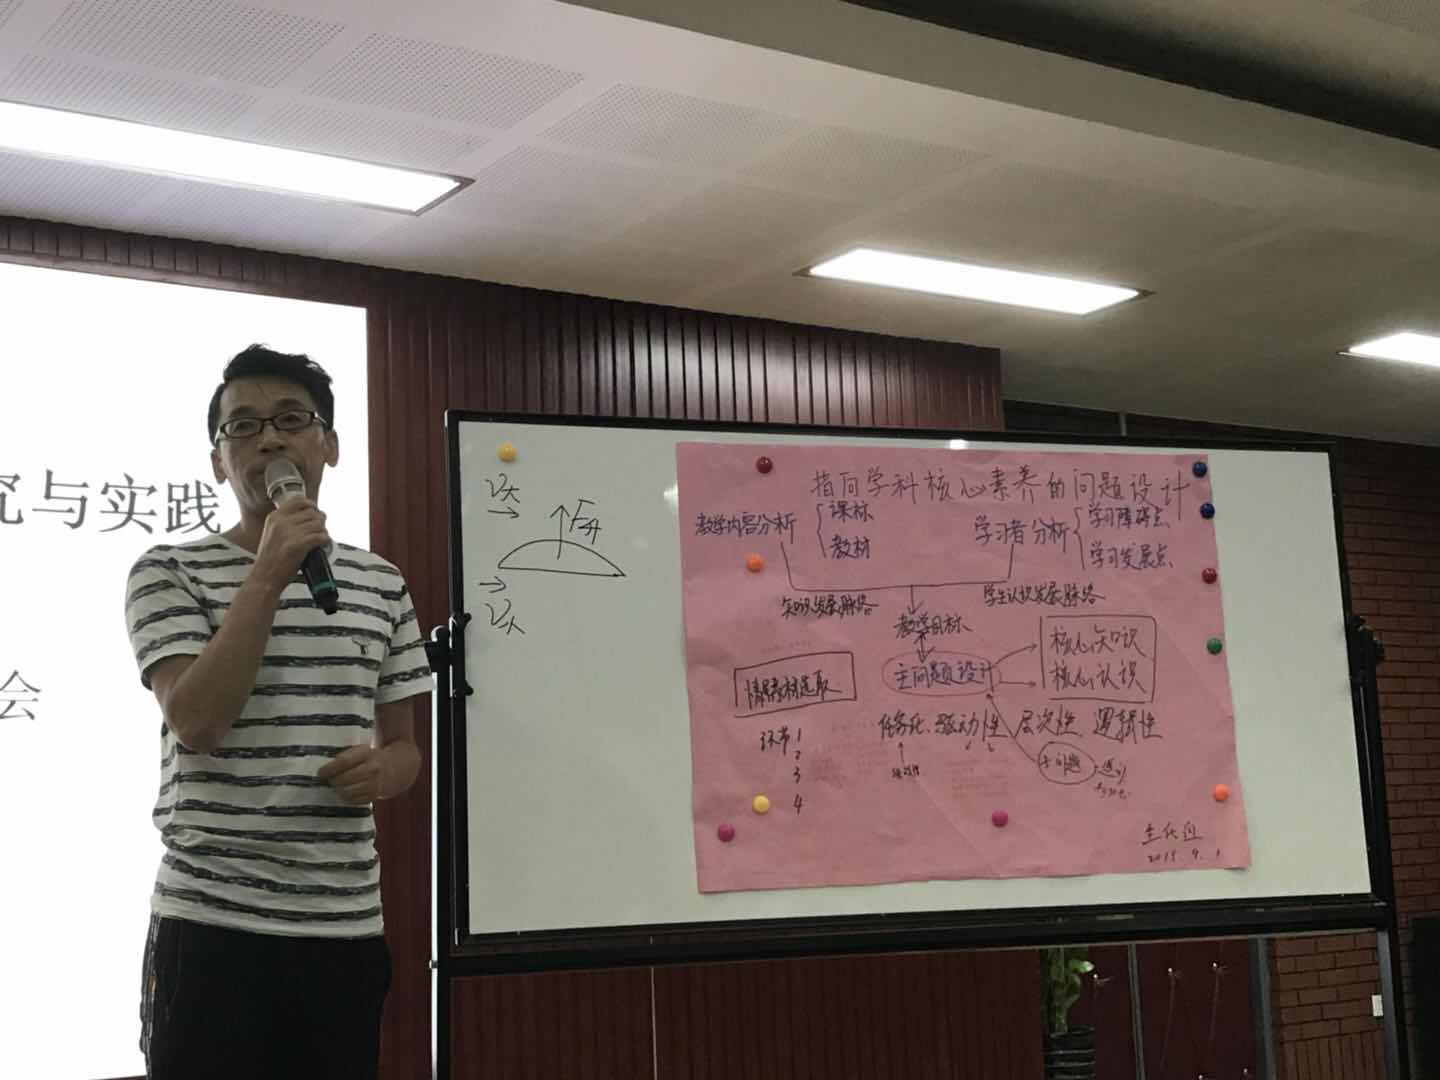 究与实践
会
V大
F升
V大
指向学科核心素养的问题设计
教学内容分析
课标
教材
学习者分析
学习障碍点
学习发展点
知识发展脉络
学生认识发展脉络
教学目标
主问题设计
核心知识
核心认识
情景素材选取
任务化、驱动性 层次性 逻辑性
环节1
2
3
4
子问题